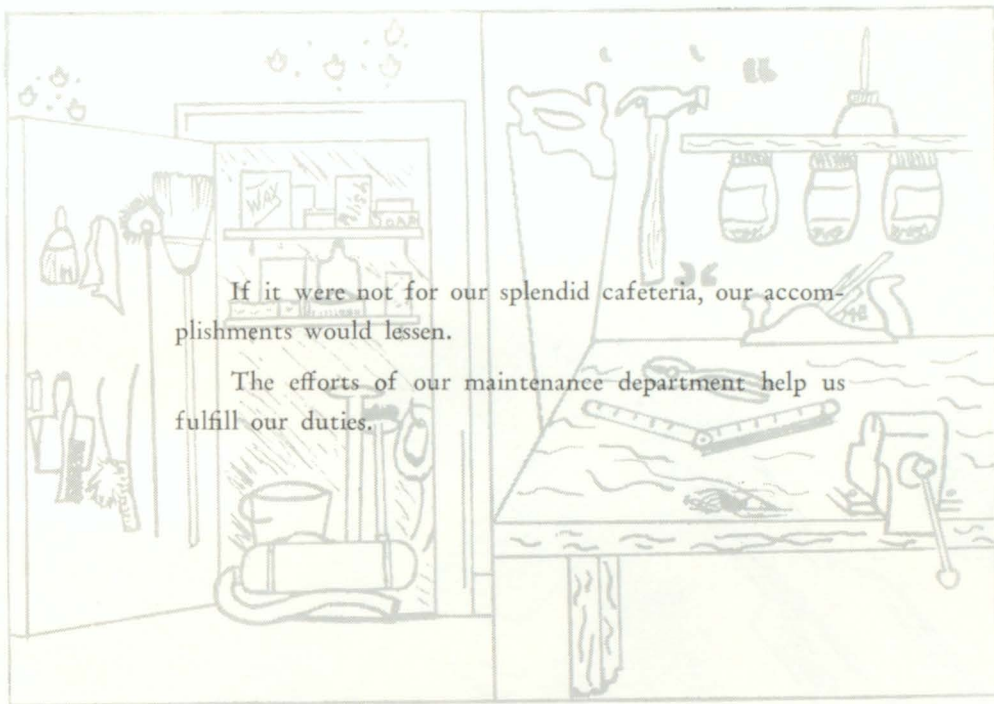 WAX
Polish
SOAP
If it were not for our splendid cafeteria, our accom-
plishments would lessen.
The efforts of our maintenance department help us
fulfill our duties.